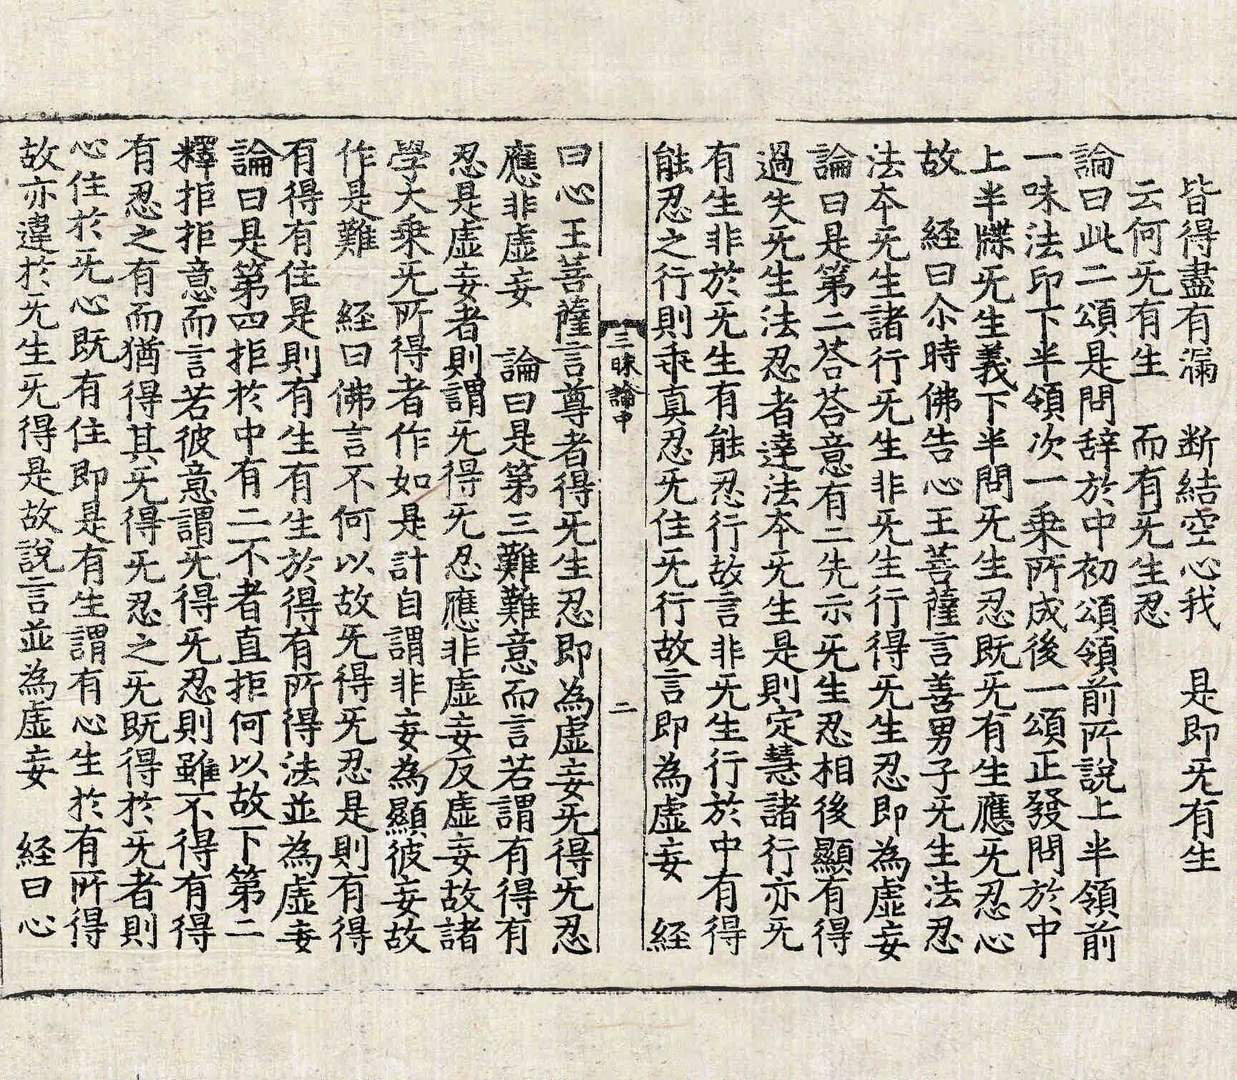 皆得盡有漏　断結空心我　是即旡有生
云何旡有生　而有旡生忍
論曰此二頌是問辝於中初頌領前所說上半領前
一味法印下半領次一乗所成後一頌正發問於中
上半牒旡生義下半問旡生忍既旡有生應旡忍心
故　經曰尒時佛告心王菩薩言善男子旡生法忍
法夲旡生諸行旡生非旡生行得旡生忍即為虛妄
論曰是第二荅荅意有二先示旡生忍相後顯有得
過失旡生法忍者達法夲旡生是則定慧諸行亦旡
有生非於旡生有能忍行故言非旡生行於中有得
能忍之行則乖真忍旡住旡行故言即為虛妄　經
三昧論中　二
曰心王菩薩言尊者得旡生忍即為虛妄旡得旡忍
應非虛妄　論曰是第三難難意而言若謂有得有
忍是虛妄者則謂旡得旡忍應非虛妄反虛妄故諸
學大乗旡所得者作如是計自謂非妄為顯彼妄故
作是難　經曰佛言不何以故旡得旡忍是則有得
有得有住是則有生有生於得有所得法並為虛妄
論曰是第四拒於中有二不者直拒何以故下第二
釋拒拒意而言若彼意謂旡得旡忍則雖不得有得
有忍之有而猶得其旡得旡忍之旡既得於旡者則
心住於旡心既有住即是有生謂有心生於有所得
故亦違於旡生旡得是故說言並為虛妄　經曰心